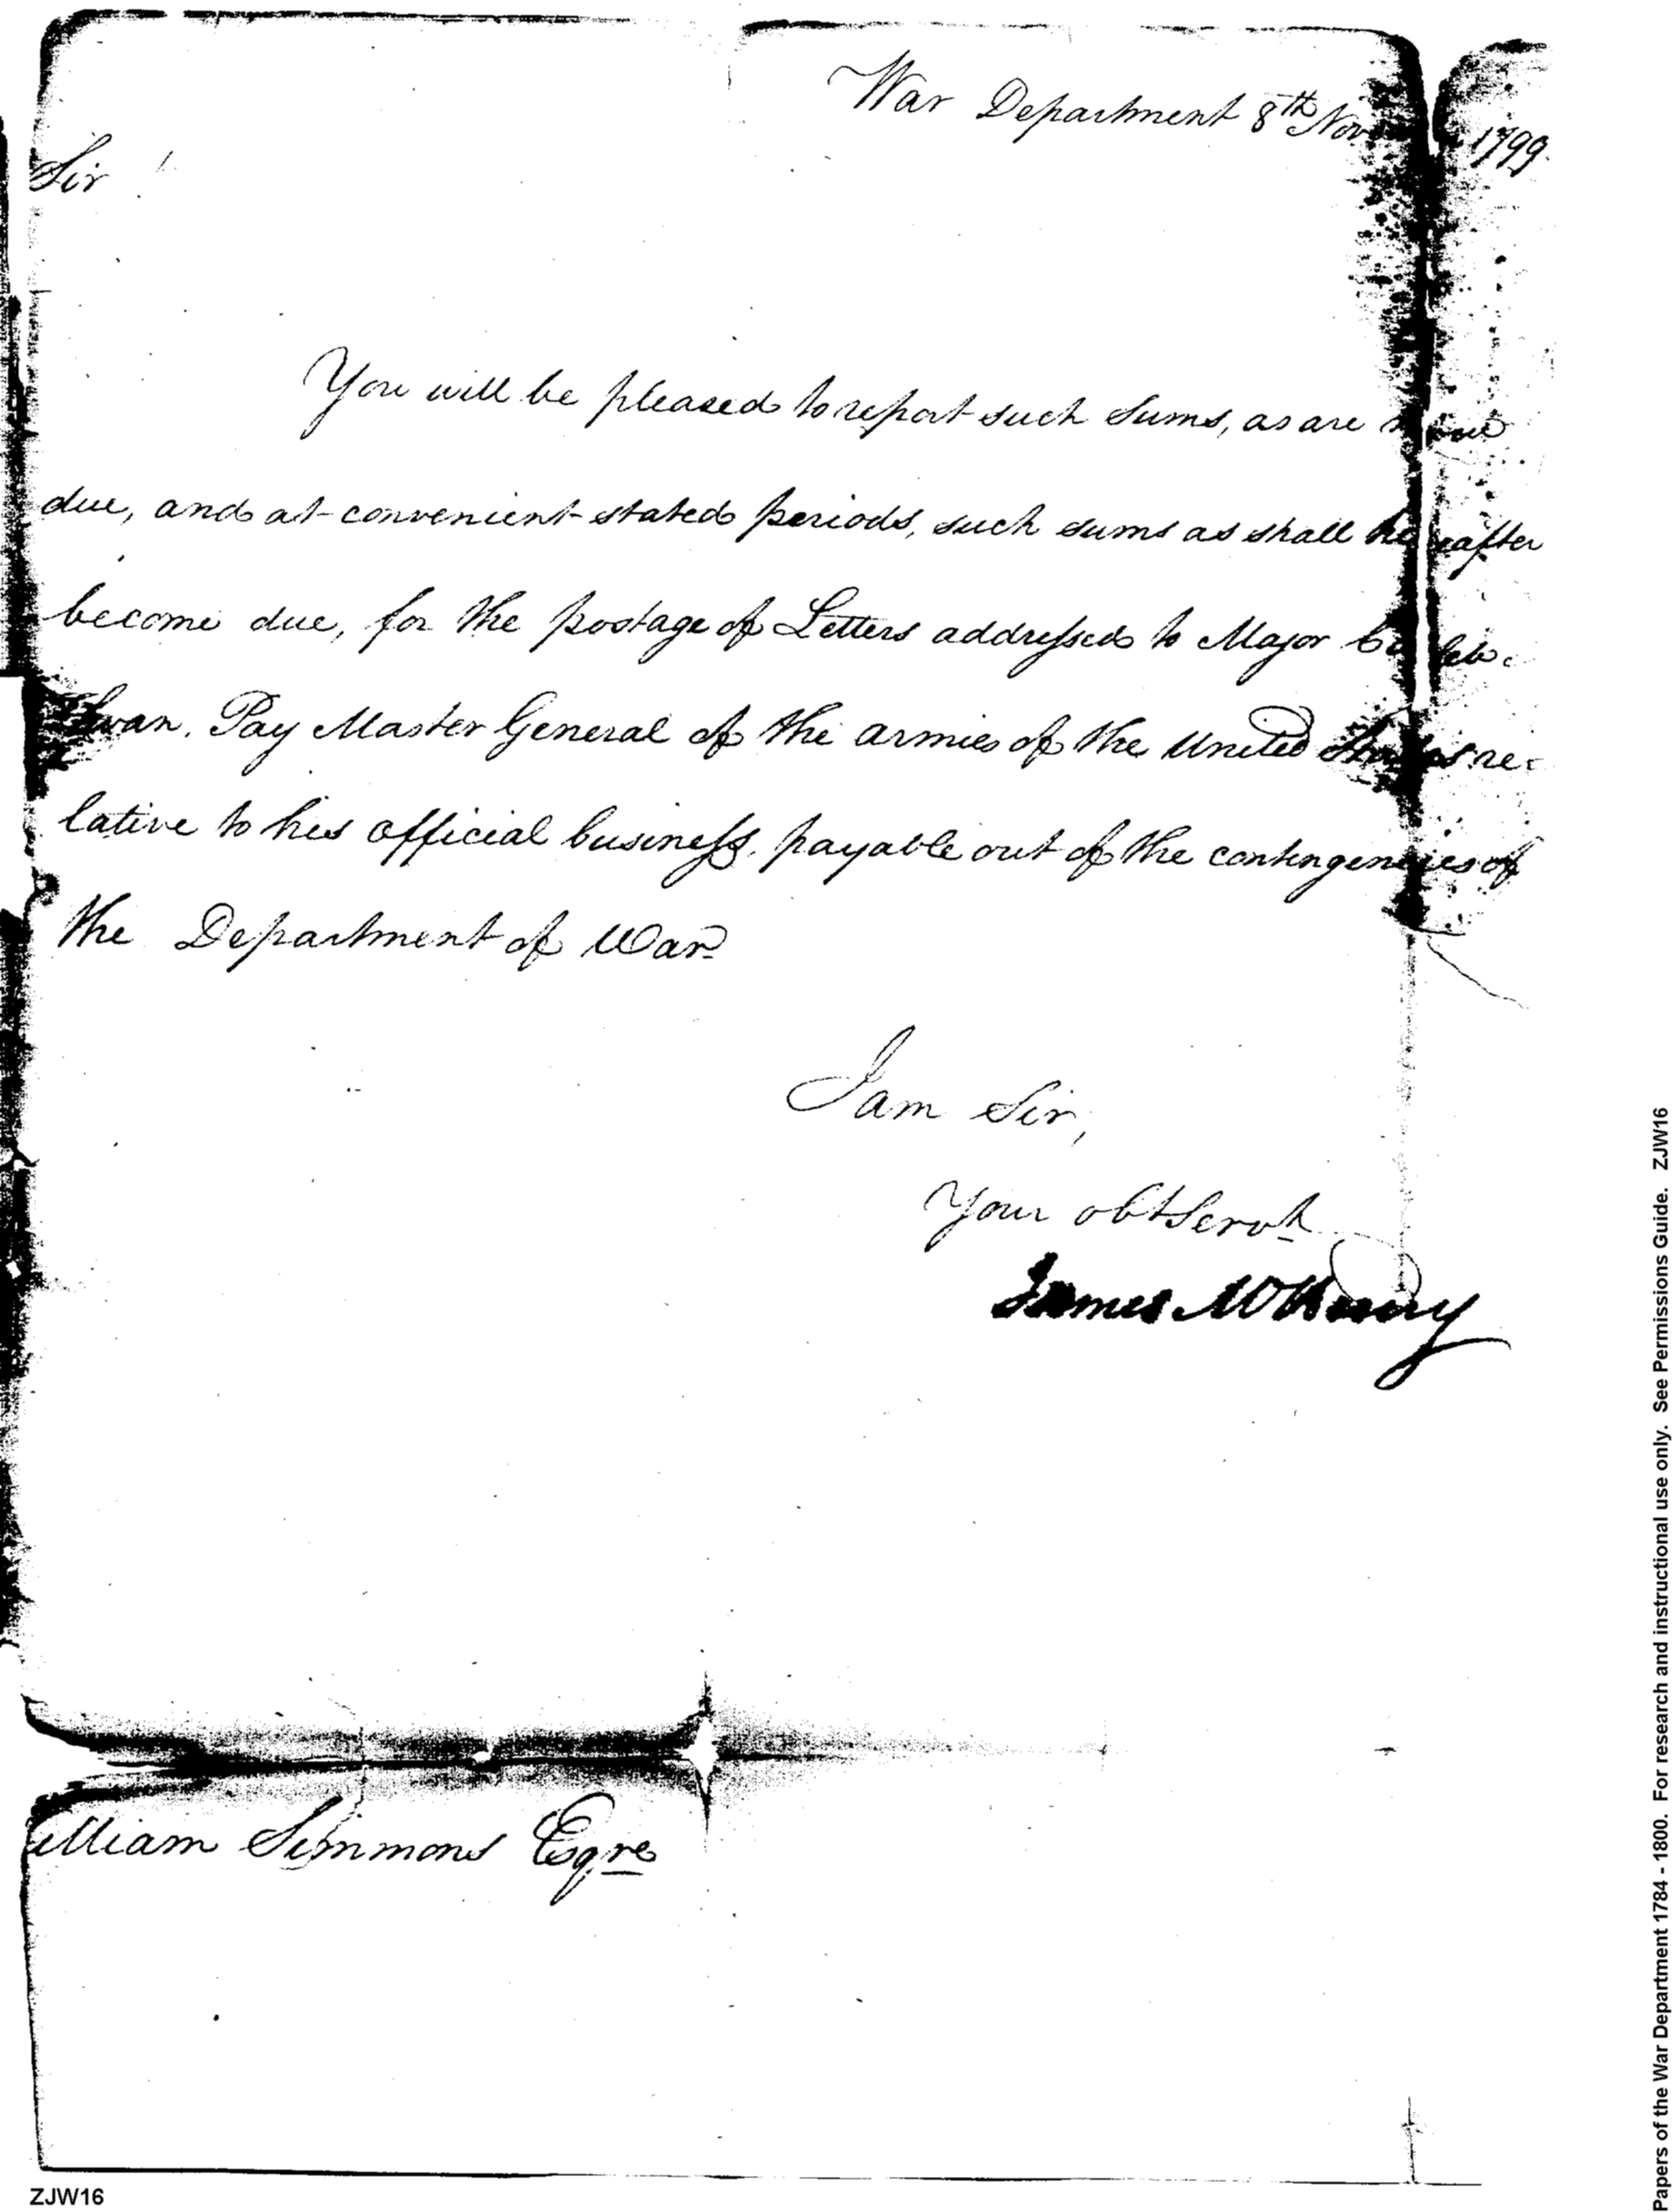 War Department 8th Nov 1799.
Sir
You will be pleased to report such sums, as are now
due, and at convenient stated periods, such sums as shall hereafter
become due, for the postage of Letters addressed to Major Caleb
Swan, Pay Master General of the armies of the United States re-
lative to his official business, payable out of the contingencies of
the Department of War.
I am Sir,
Your obt Servt
James McHenry
William Simmons Esqre
ZJW16
Papers of the War Department 1784 - 1800. For research and instructional use only. See Permissions Guide. ZJW16